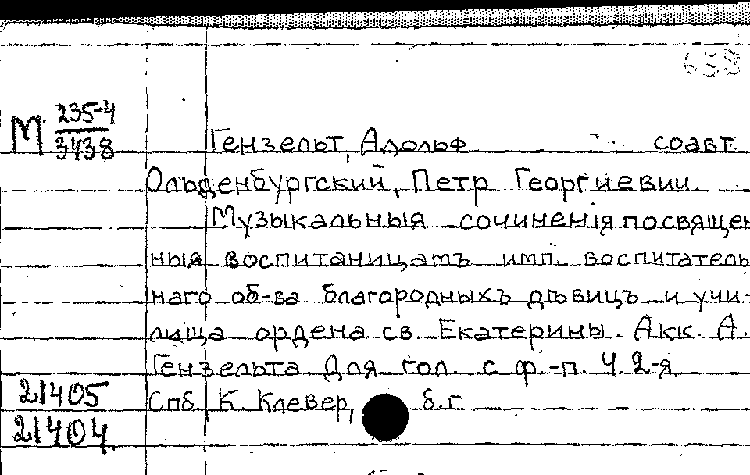 638
М 235-4
3438
Гензельт, Адольф соавт.
Ольденбургский, Петр Георгиевич.
Музыкальныя сочиненія посвящен
ныя воспитаницамъ имп. воспитатель
наго об-ва благородныхъ дѣвицъ и учи-
лища ордена св. Екатерины. Акк. А.
Гензельта. Для гол. с ф.-п. Ч. 2-я
21405 Спб К. Клевер, б.г.
21404